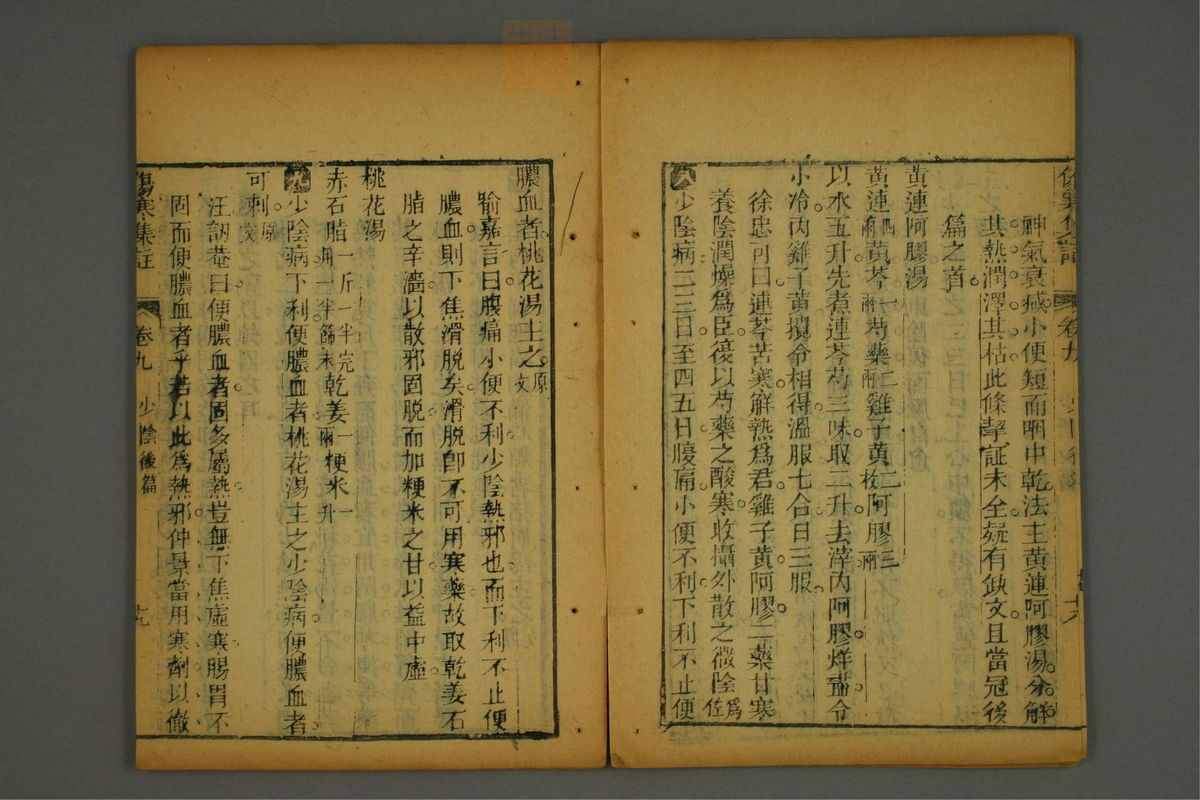 傷寒集註 卷九
神氣衰減小便短而咽中乾法主黃連阿膠湯分解
其熱潤澤其枯此條聲証未全疑有缺文且當冠後
篇之首
黃連阿膠湯
黃連四兩黃芩一兩芍藥二兩雞子黃二枚阿膠三兩
以水五升先煮連芩芍三味取二升去滓內阿膠烊盡令
小冷內雞子黃攪令相得溫服七合日三服
徐忠可曰連芩苦寒解熱爲君雞子黃阿膠二藥甘寒
養陰潤燥爲臣後以芍藥之酸寒收攝外散之微陰爲佐
少陰病二三日至四五日腹痛小便不利下利不止便
膿血者桃花湯主之原文
喻嘉言曰腹痛小便不利少陰熱邪也而下利不止便
膿血則下焦滑脫矣滑脫卽不可用寒藥故取乾姜石
脂之辛濇以散邪固脫而加粳米之甘以益中虛
桃花湯
赤石脂一斤一半完用一半篩末乾姜一兩粳米一升
少陰病下利便膿血者桃花湯主之少陰病便膿血者
可刺原文
汪訒菴曰便膿血者固多屬熱豈無下焦虛寒腸胃不
固而便膿血者乎若以此爲熱邪仲景當用寒劑以徹
傷寒集註 卷九 少陰後篇 十九